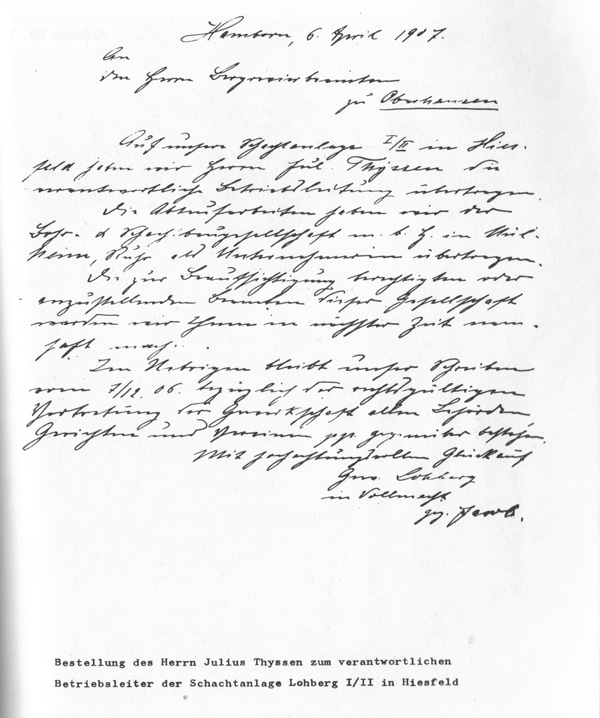 Hamborn, 6. April 1907.
An
den Herrn Bergrevierbeamten
zu Oberhausen
Auf unsere Schachtanlage I/II in Hies-
feld haben wir Herrn Jul. Thyssen die
verantwortliche Betriebsleitung übertragen.
Die Abteufarbeiten haben wir der
Bohr- & Schachtbaugesellschaft m. b. H. in Mül-
heim, Ruhr als Unternehmerin übertragen.
Die zur Beaufsichtigung berechtigten oder
anzustellenden Beamten dieser Gesellschaft
werden wir Ihnen in nächster Zeit nam-
haft mach.
Im Uebrigen bleibt unser Schreiben
vom 7/12. 06. bezüglich der rechtsgültigen
Vertretung der Gewerkschaft allen Behörden
Gerichten und Vereinen pp. gegenüber bestehen.
Mit hochachtungsvollem Glückauf
Gew. Lohberg
in Vollmacht
gez. Jacob.
Bestellung des Herrn Julius Thyssen zum verantwortlichen
Betriebsleiter der Schachtanlage Lohberg I/II in Hiesfeld